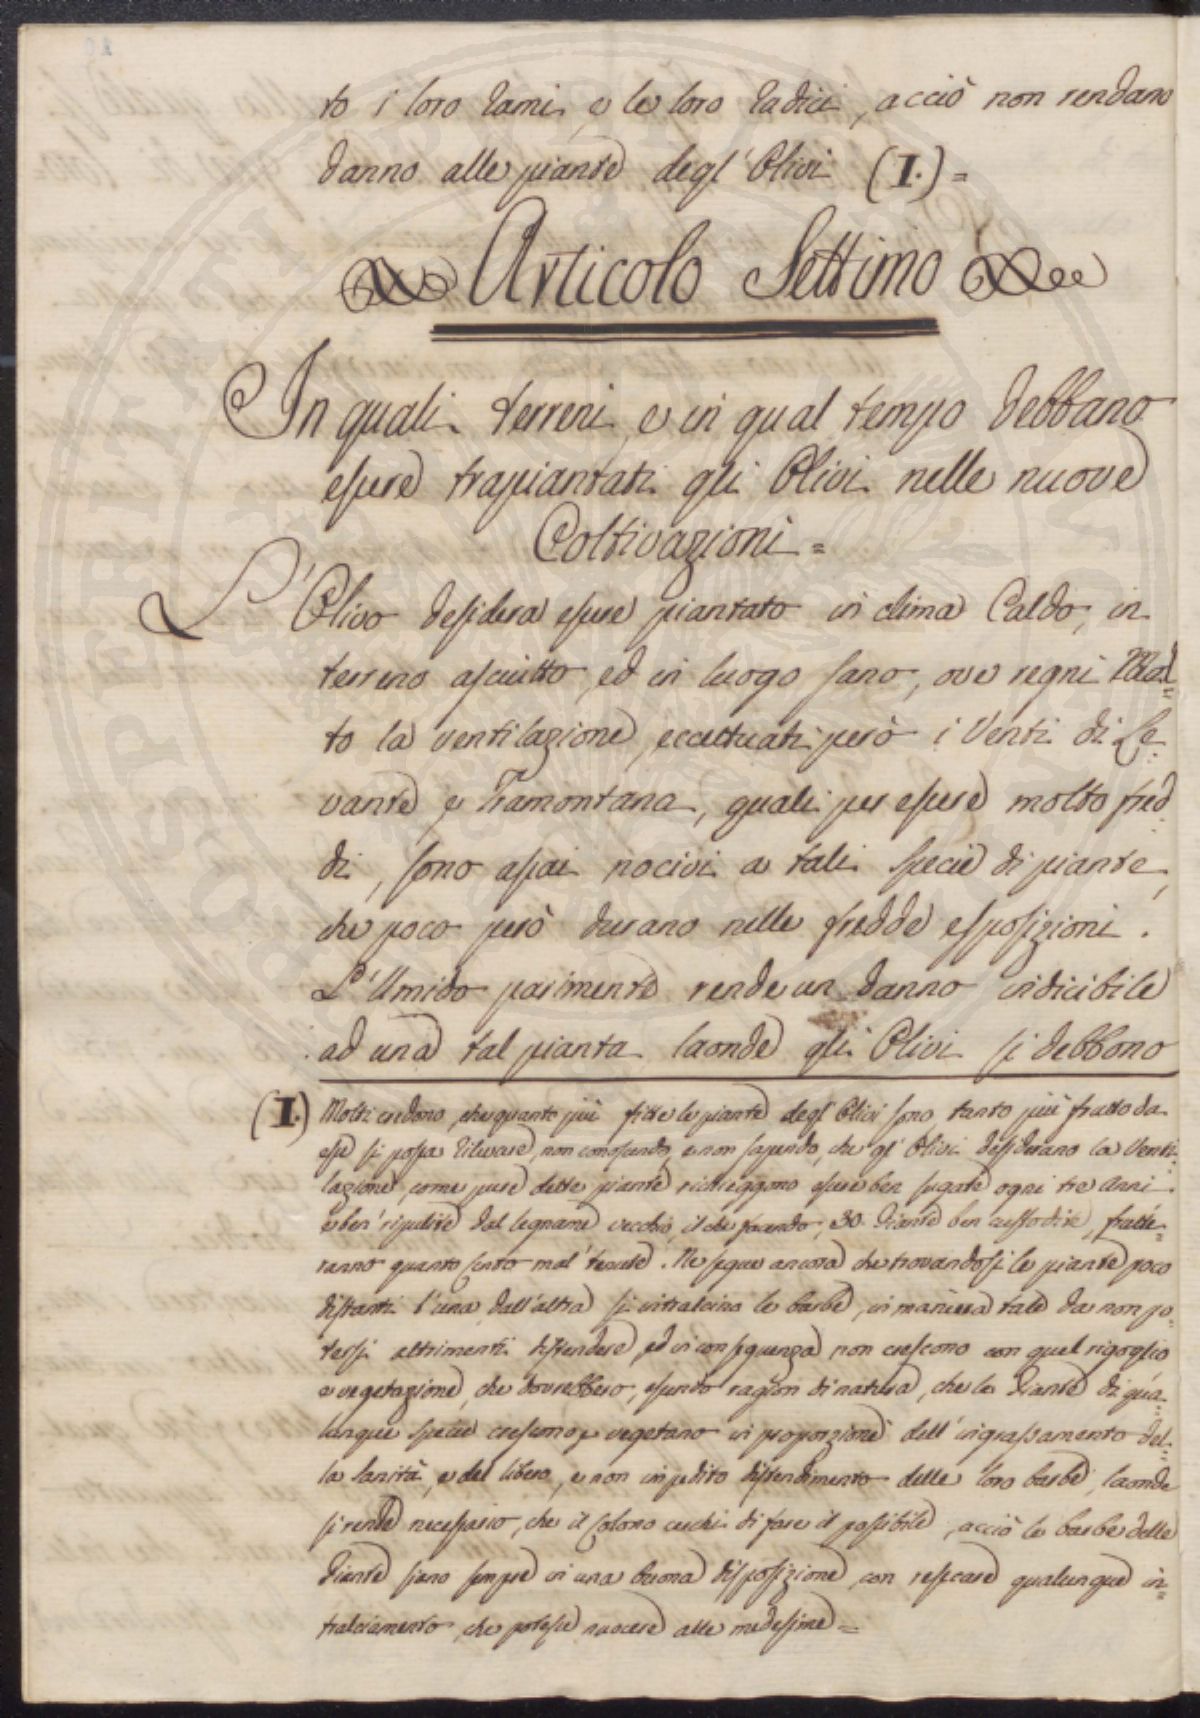 to i loro Rami, e le loro Radici, acciò non rendano
danno alle piante degl' Olivi (I.) =
Articolo Settimo
In quali terreni, e in qual tempo debbano
essere trapiantati gli Olivi nelle nuove
Coltivazioni =
L'Olivo desidera essere piantato in clima Caldo, in
terreno asciutto, ed in luogo sano, ove regni Mol=
to la ventilazione, eccettuati però i Venti di Le=
vante, e Tramontana, quali per essere molto fred=
di, sono assai nocivi a tali specie di piante,
che poco però durano nelle fredde esposizioni.
L'Umido parimente rende un danno indicibile
ad una tal pianta, laonde gli Olivi si debbono
(I.) Molti credono, che quanto più fitte le piante degl' Olivi sono, tanto più frutto da
esse si possa rilevare, non conoscendo, e non sapendo, che gl' Olivi desiderano la Venti=
lazione, come pure dette piante richieggono essere ben fugate ogni tre anni.
e ben' ripulite dal legname vecchio, il che facendo, 30. Piante ben custodite, frutte=
ranno quanto cento mal' tenute. Ne segue ancora che trovandosi le piante poco
distanti l'una dall'altra si intralciano le barbe, in maniera tale da non po=
tersi altrimenti distendere, ed in conseguenza non crescono con quel rigoglio
e vegetazione, che dovrebbero, essendo ragion di natura, che le Piante di qua=
lunque specie crescono, e vegetano in proporzione dell' ingrassamento del=
la sanità, e del libero, e non impedito distendimento delle loro barbe, laonde
si rende necessario, che il Colono cerchi di fare il possibile, acciò le barbe delle
Piante siano sempre in una buona disposizione, con resecare qualunque in=
tralciamento, che potesse nuocere alle medesime =